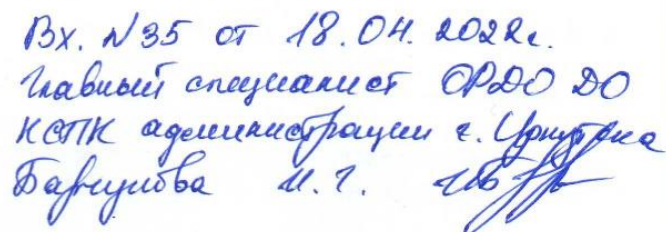 Вх. N35 от 18.04.2022г.
Главный специалист ОРДО ДО
КСПК администрации г. Иркутска
И.Г.